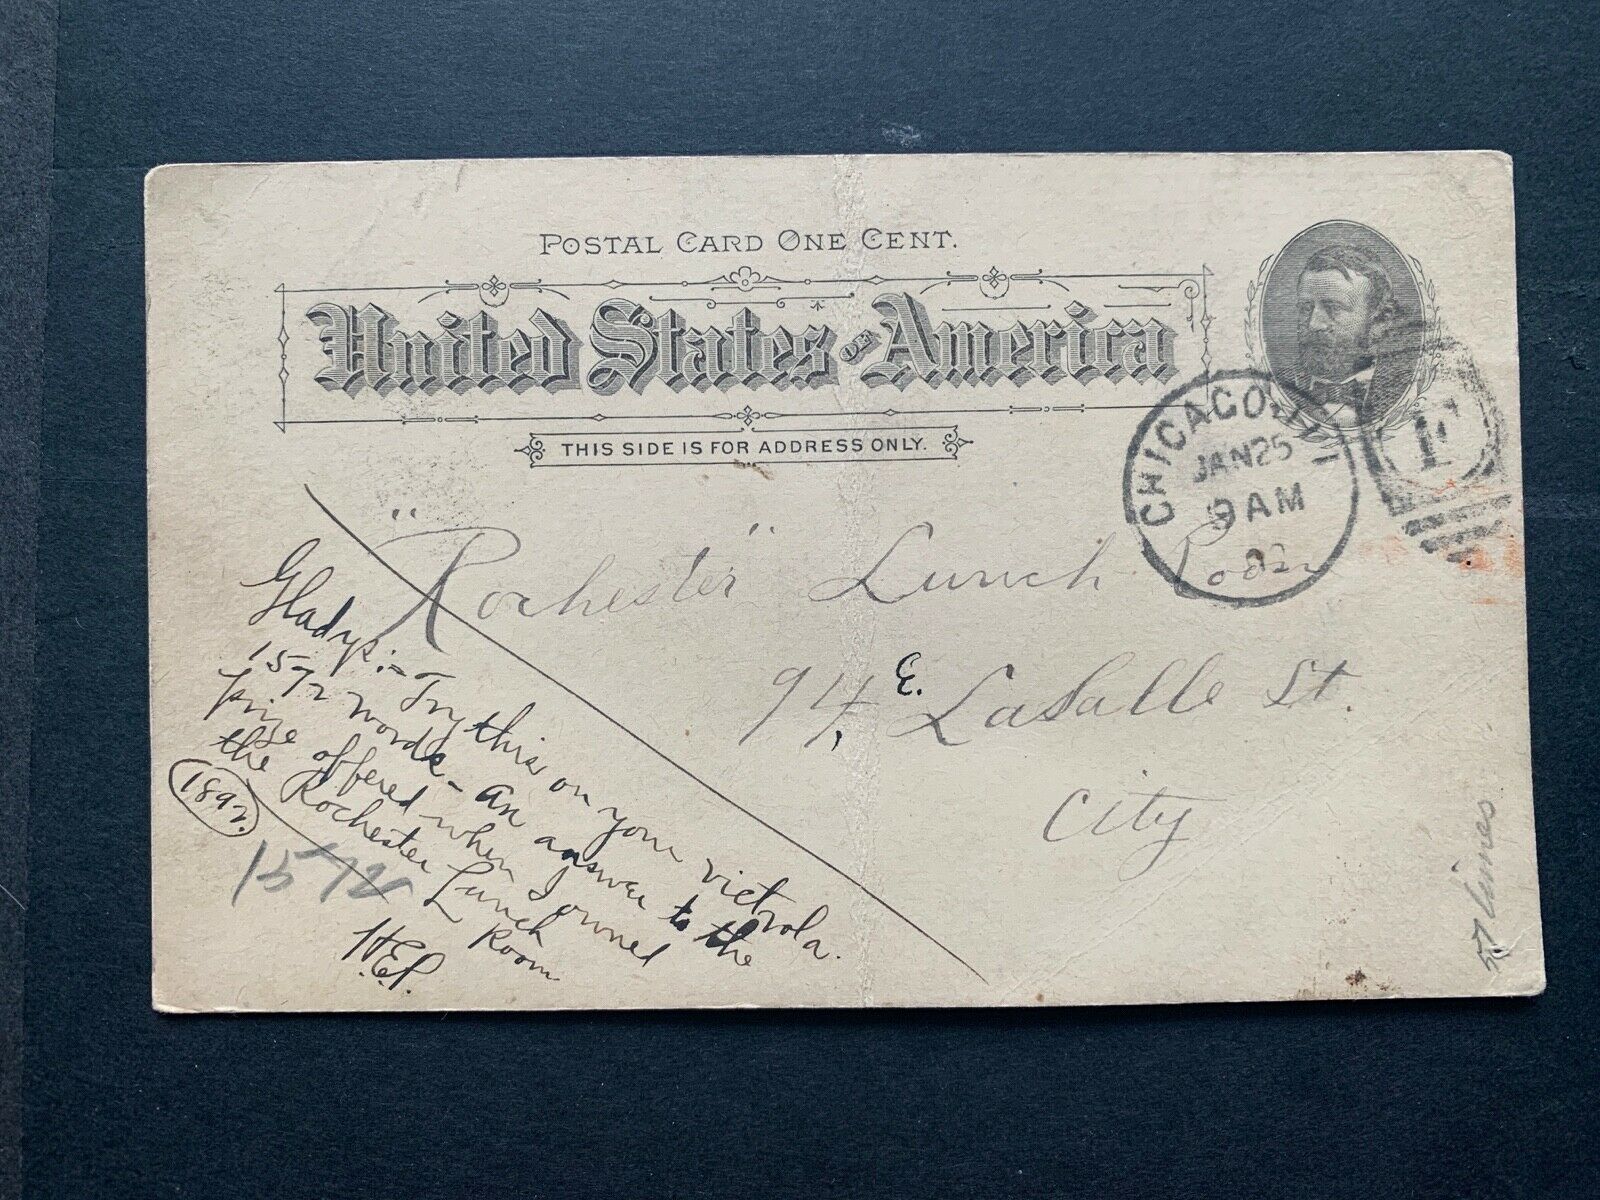 POSTAL CARD ONE CENT.
United States OF America
THIS SIDE IS FOR ADDRESS ONLY.
CHICAGO, ILL
JAN 25
9 AM
92
"Rochester" Lunch Room
94, E. LaSalle St.
City
Gladys:- Try this on your victrola.
1572 words - An answer to the
prize offered when I owned
the Rochester Lunch Room
1892.
H.E.P.
1572
57 lines